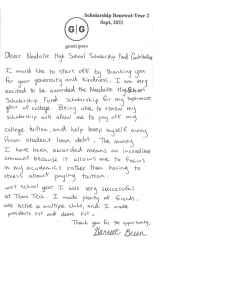 Scholarship Renewal-Year 2
Sept, 2021
G G
garrett green
Dear Neodale High School Scholarship Fund Contributors
I would like to start off by thanking you
for your generosity and kindness. I am very
excited to be awarded the Neodale High School
Scholarship Fund scholarship for my sophomore
year of college. Being able to renew my
scholarship will allow me to pay off my
college tuition, and help keep myself away
from student loan debt. The money
I have been awarded means an incredible
amount because it allows me to focus
on my academics rather than having to
stress about paying tuition.
Last school year I was very successful
at Texas Tech. I made plenty of friends,
was active in multiple clubs, and I made
presidents list and deans list.
Thank you for the opportunity,